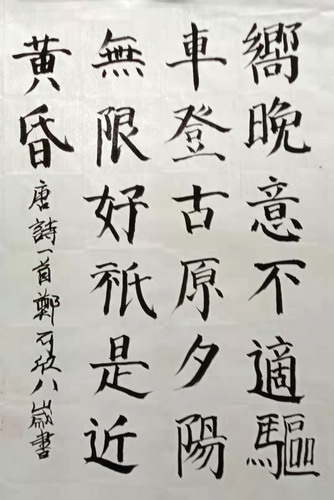 嚮晚意不適驅
車登古原夕陽
無限好祇是近
黃昏
唐詩一首鄭石欣八歲書